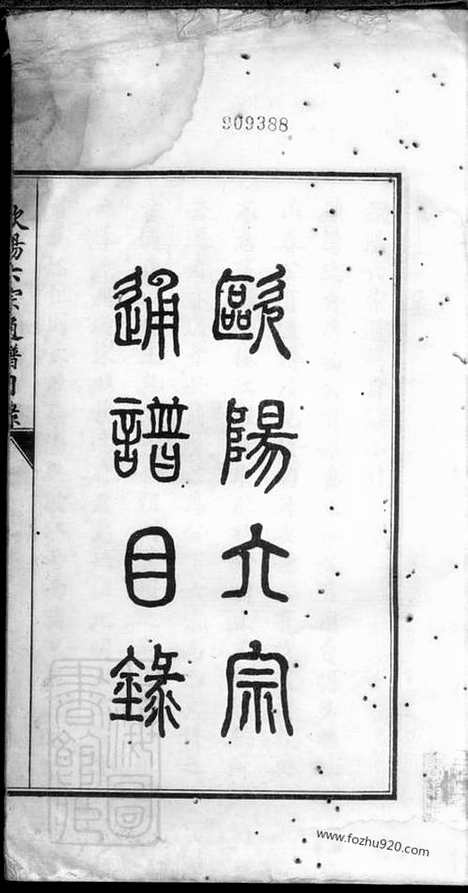 909388
歐陽六宗
通譜目錄
歐陽六宗通譜目錄
www.fozhu920.com